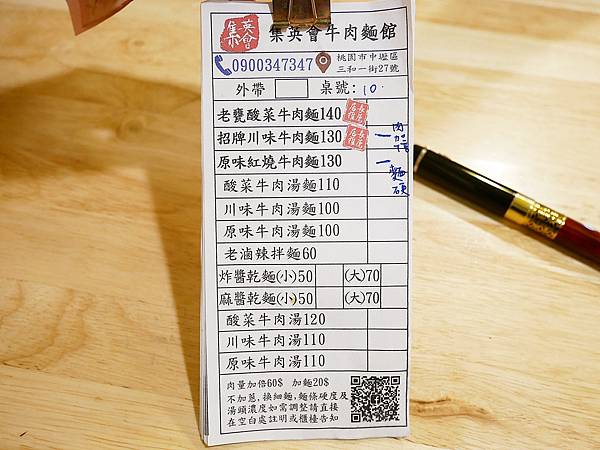 集英會 集英會牛肉麵館
0900347347 桃園市中壢區
三和一街27號
外帶 桌號: 10
老甕酸菜牛肉麵140 店長推薦
招牌川味牛肉麵130 店長推薦 一 肉加倍
原味紅燒牛肉麵130 一 麵硬
酸菜牛肉湯麵110
川味牛肉湯麵100
原味牛肉湯麵100
老滷辣拌麵60
炸醬乾麵(小)50 (大)70
麻醬乾麵(小)50 (大)70
酸菜牛肉湯120
川味牛肉湯110
原味牛肉湯110
肉量加倍60$ 加麵20$
不加蔥,換細麵,麵條硬度及
湯頭濃度如需調整請直接
在空白處註明或櫃檯告知